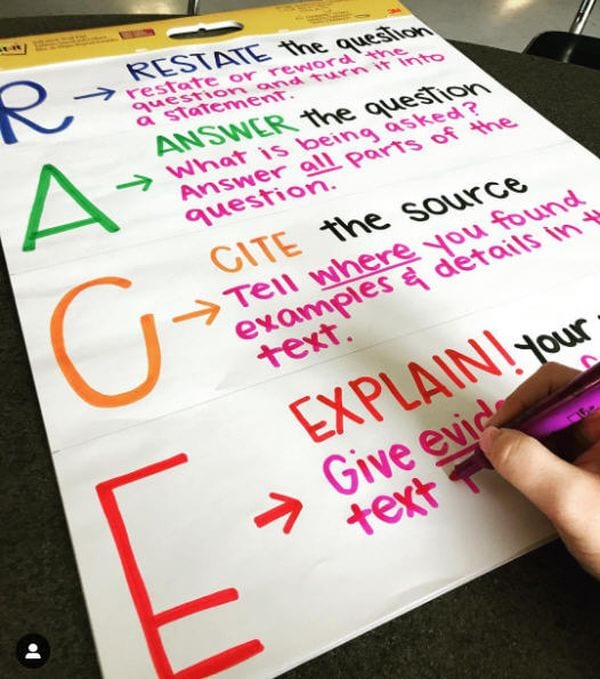 3M
R → RESTATE the question
restate or reword the
question and turn it into
a statement.
A → ANSWER the question
What is being asked?
Answer all parts of the
question.
C → CITE the source
Tell where you found
examples & details in
text.
E → EXPLAIN! Your
Give
text